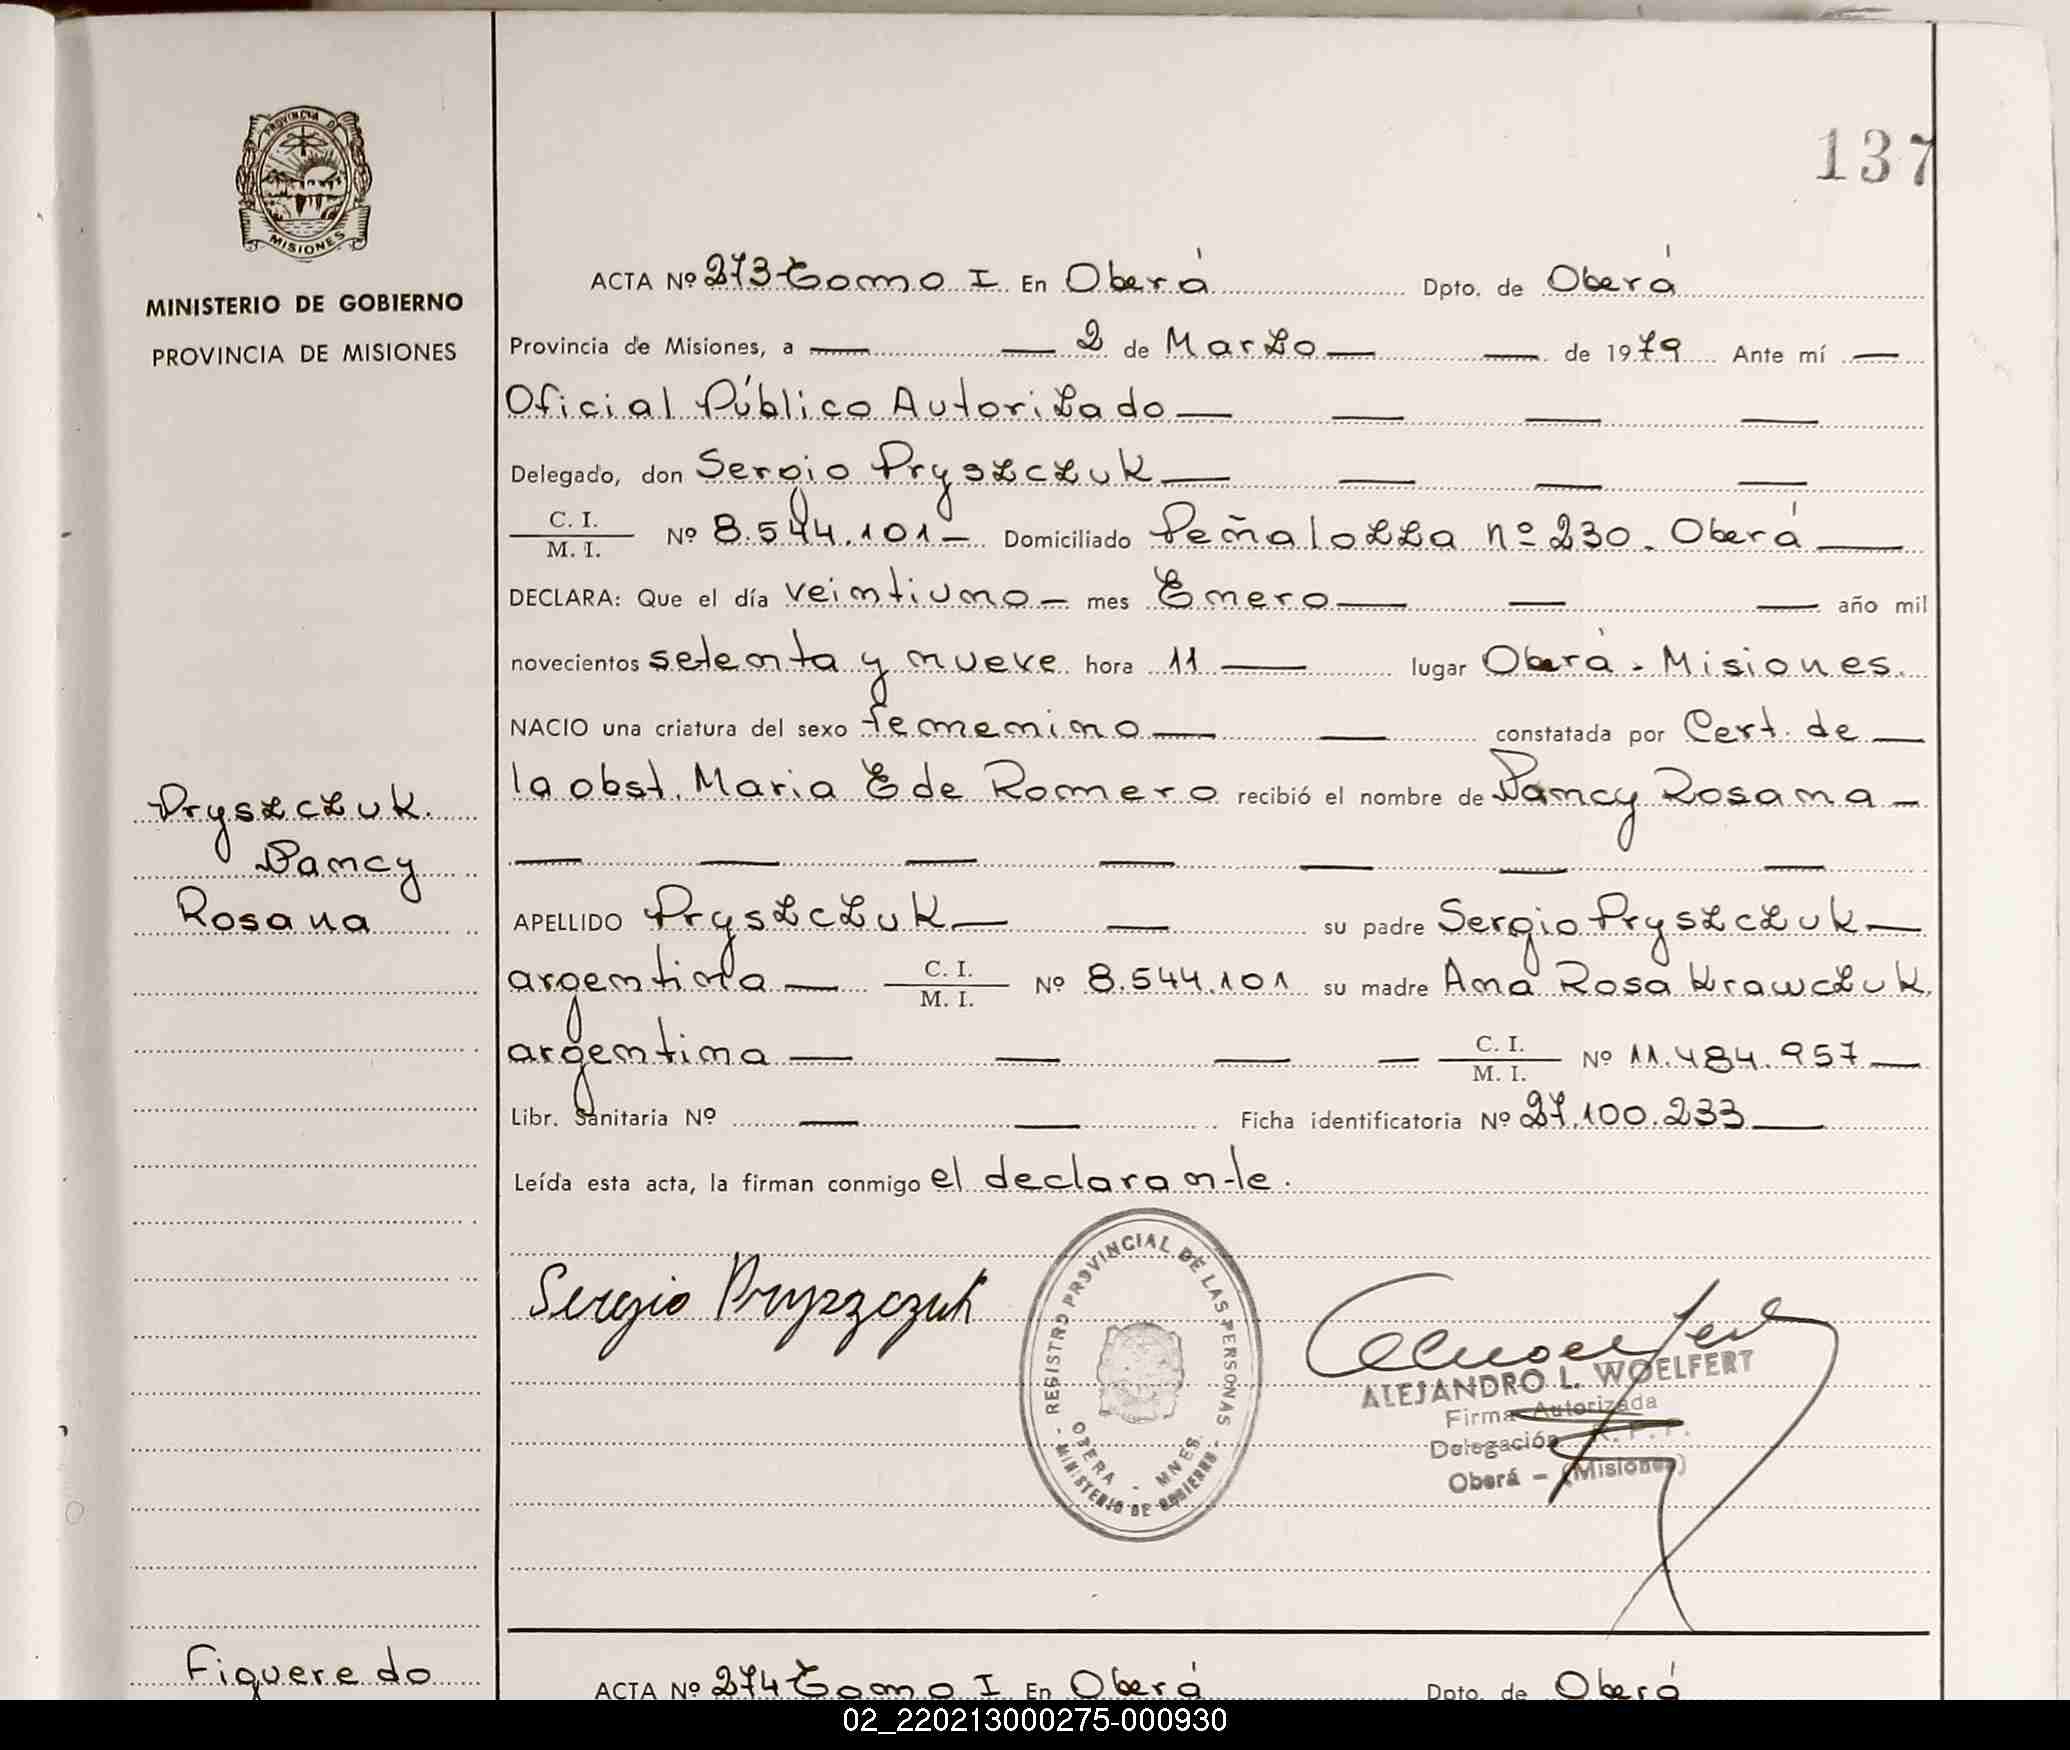 137
PROVINCIA DE
MISIONES
MINISTERIO DE GOBIERNO
PROVINCIA DE MISIONES
ACTA Nº 273 Tomo I En Oberá Dpto. de Oberá
Provincia de Misiones, a — — 2 de Marzo — — de 1979 Ante mí —
Oficial Público Autorizado — — — —
Delegado, don Sergio Pryszczuk — — — —
C. I.
M. I. Nº 8.544.101 — Domiciliado Peñalozza nº 230. Oberá —
DECLARA: Que el día veintiuno — mes Enero — — — año mil
novecientos setenta y nueve hora 11 — lugar Oberá - Misiones.
NACIO una criatura del sexo femenino — — constatada por Cert. de —
la obst. Maria E de Romero recibió el nombre de Nancy Rosana —
— — — — — — —
APELLIDO Pryszczuk — — su padre Sergio Pryszczuk —
argentina — C. I. M. I. Nº 8.544.101 su madre Ana Rosa Krawczuk.
argentina — — — — C. I. M. I. Nº 11.484.957 —
Libr. Sanitaria Nº — — Ficha identificatoria Nº 27.100.233 —
Leída esta acta, la firman conmigo el declarante.
Pryszczuk.
Nancy
Rosana
Sergio Pryszczuk
REGISTRO PROVINCIAL DE LAS PERSONAS
OBERA - MNES.
- MINISTERIO DE GOBIERNO -
ALEJANDRO L. WOELFERT
Firma Autorizada
Delegación R. P. P.
Oberá - (Misiones)
Figueredo
ACTA Nº 274 Tomo I En Oberá Dpto. de Oberá
02_220213000275-000930